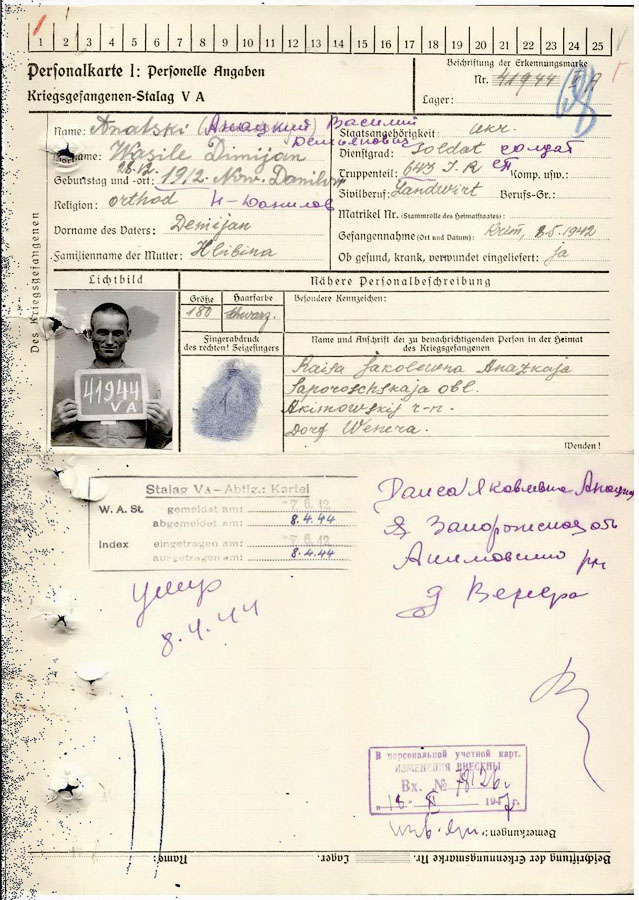 1 2 3 4 5 6 7 8 9 10 11 12 13 14 15 16 17 18 19 20 21 22 23 24 25
Personalkarte I: Personelle Angaben
Kriegsgefangenen-Stalag V A
Beschriftung der Erkennungsmarke
Nr. 41944
Lager:
Des Kriegsgefangenen
Name: Anatski (Анацкий) Василий
Демьянович
Vorname: Wasile Dimijan
Geburtstag und -ort: 28.12. 1912. Now. Danilow
Religion: orthod Н-Данилов
Vorname des Vaters: Demijan
Familienname der Mutter: Hlibina
Staatsangehörigkeit: ukr.
Dienstgrad: Soldat солдат
Truppenteil: 643 I.R СП Komp. usw.:
Zivilberuf: Landwirt Berufs-Gr.:
Matrikel Nr. (Stammrolle des Heimatstaates):
Gefangennahme (Ort und Datum): Krim, 8.5.1942
Ob gesund, krank, verwundet eingeliefert: ja
Lichtbild
41944
VA
Nähere Personalbeschreibung
Größe Haarfarbe
180 schwarz.
Besondere Kennzeichen:
Fingerabdruck
des rechten! Zeigefingers
Name und Anschrift der zu benachrichtigenden Person in der Heimat
des Kriegsgefangenen
Raisa Jakolewna Anazkaja
Saporoschskaja obl.
Akimowskij r-n.
Dorf Wenera.
Wenden!
Stalag VA – Abtlg.: Kartei
W. A. St. gemeldet am:
abgemeldet am: 8.4.44
Index eingetragen am:
ausgetragen am: 8.4.44
Раиса Яковлевна
Запорожская об
рн
д Венера
умер
8.4.44
В персональной учетной карт.
ИЗМЕНЕНИЯ ВНЕСЕНЫ
Вх. №
194 г.
Bemerkungen:
Beschriftung der Erkennungsmarke Nr. Lager: Name: